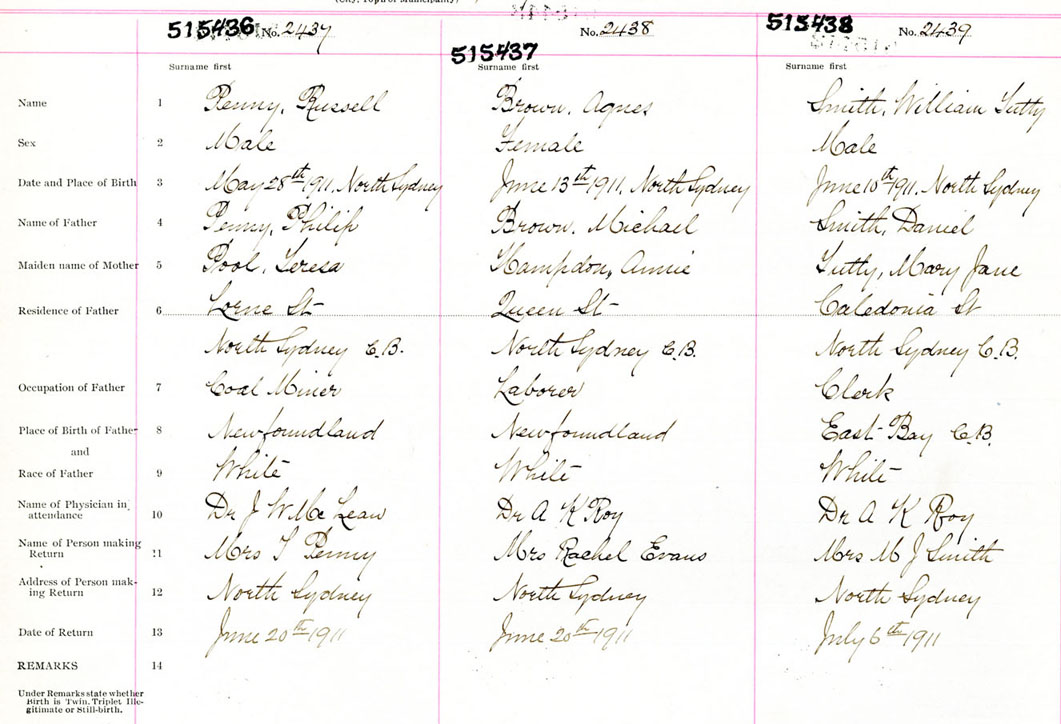 (City, Town or Municipality)
515436 No. 2437
515437 No. 2438
515438 No. 2439
Surname first Surname first Surname first
Name 1 Penny, Russell Brown, Agnes Smith, William Tutty
Sex 2 Male Female Male
Date and Place of Birth 3 May 28th 1911, North Sydney June 13th 1911, North Sydney June 10th 1911, North Sydney
Name of Father 4 Penny, Philip Brown, Michael Smith, Daniel
Maiden name of Mother 5 Pool, Teresa Hampdon, Annie Tutty, Mary Jane
Residence of Father 6 Lorne St Queen St Caledonia St
North Sydney C.B. North Sydney C.B. North Sydney C.B.
Occupation of Father 7 Coal Miner Laborer Clerk
Place of Birth of Father 8 Newfoundland Newfoundland East Bay C.B.
and
Race of Father 9 White White White
Name of Physician in attendance 10 Dr J W Mc Lean Dr A K Roy Dr A K Roy
Name of Person making Return 11 Mrs T Penny Mrs Rachel Evans Mrs M J Smith
Address of Person making Return 12 North Sydney North Sydney North Sydney
Date of Return 13 June 20th 1911 June 20th 1911 July 6th 1911
REMARKS 14
Under Remarks state whether
Birth is Twin, Triplet Ille-
gitimate or Still-birth.